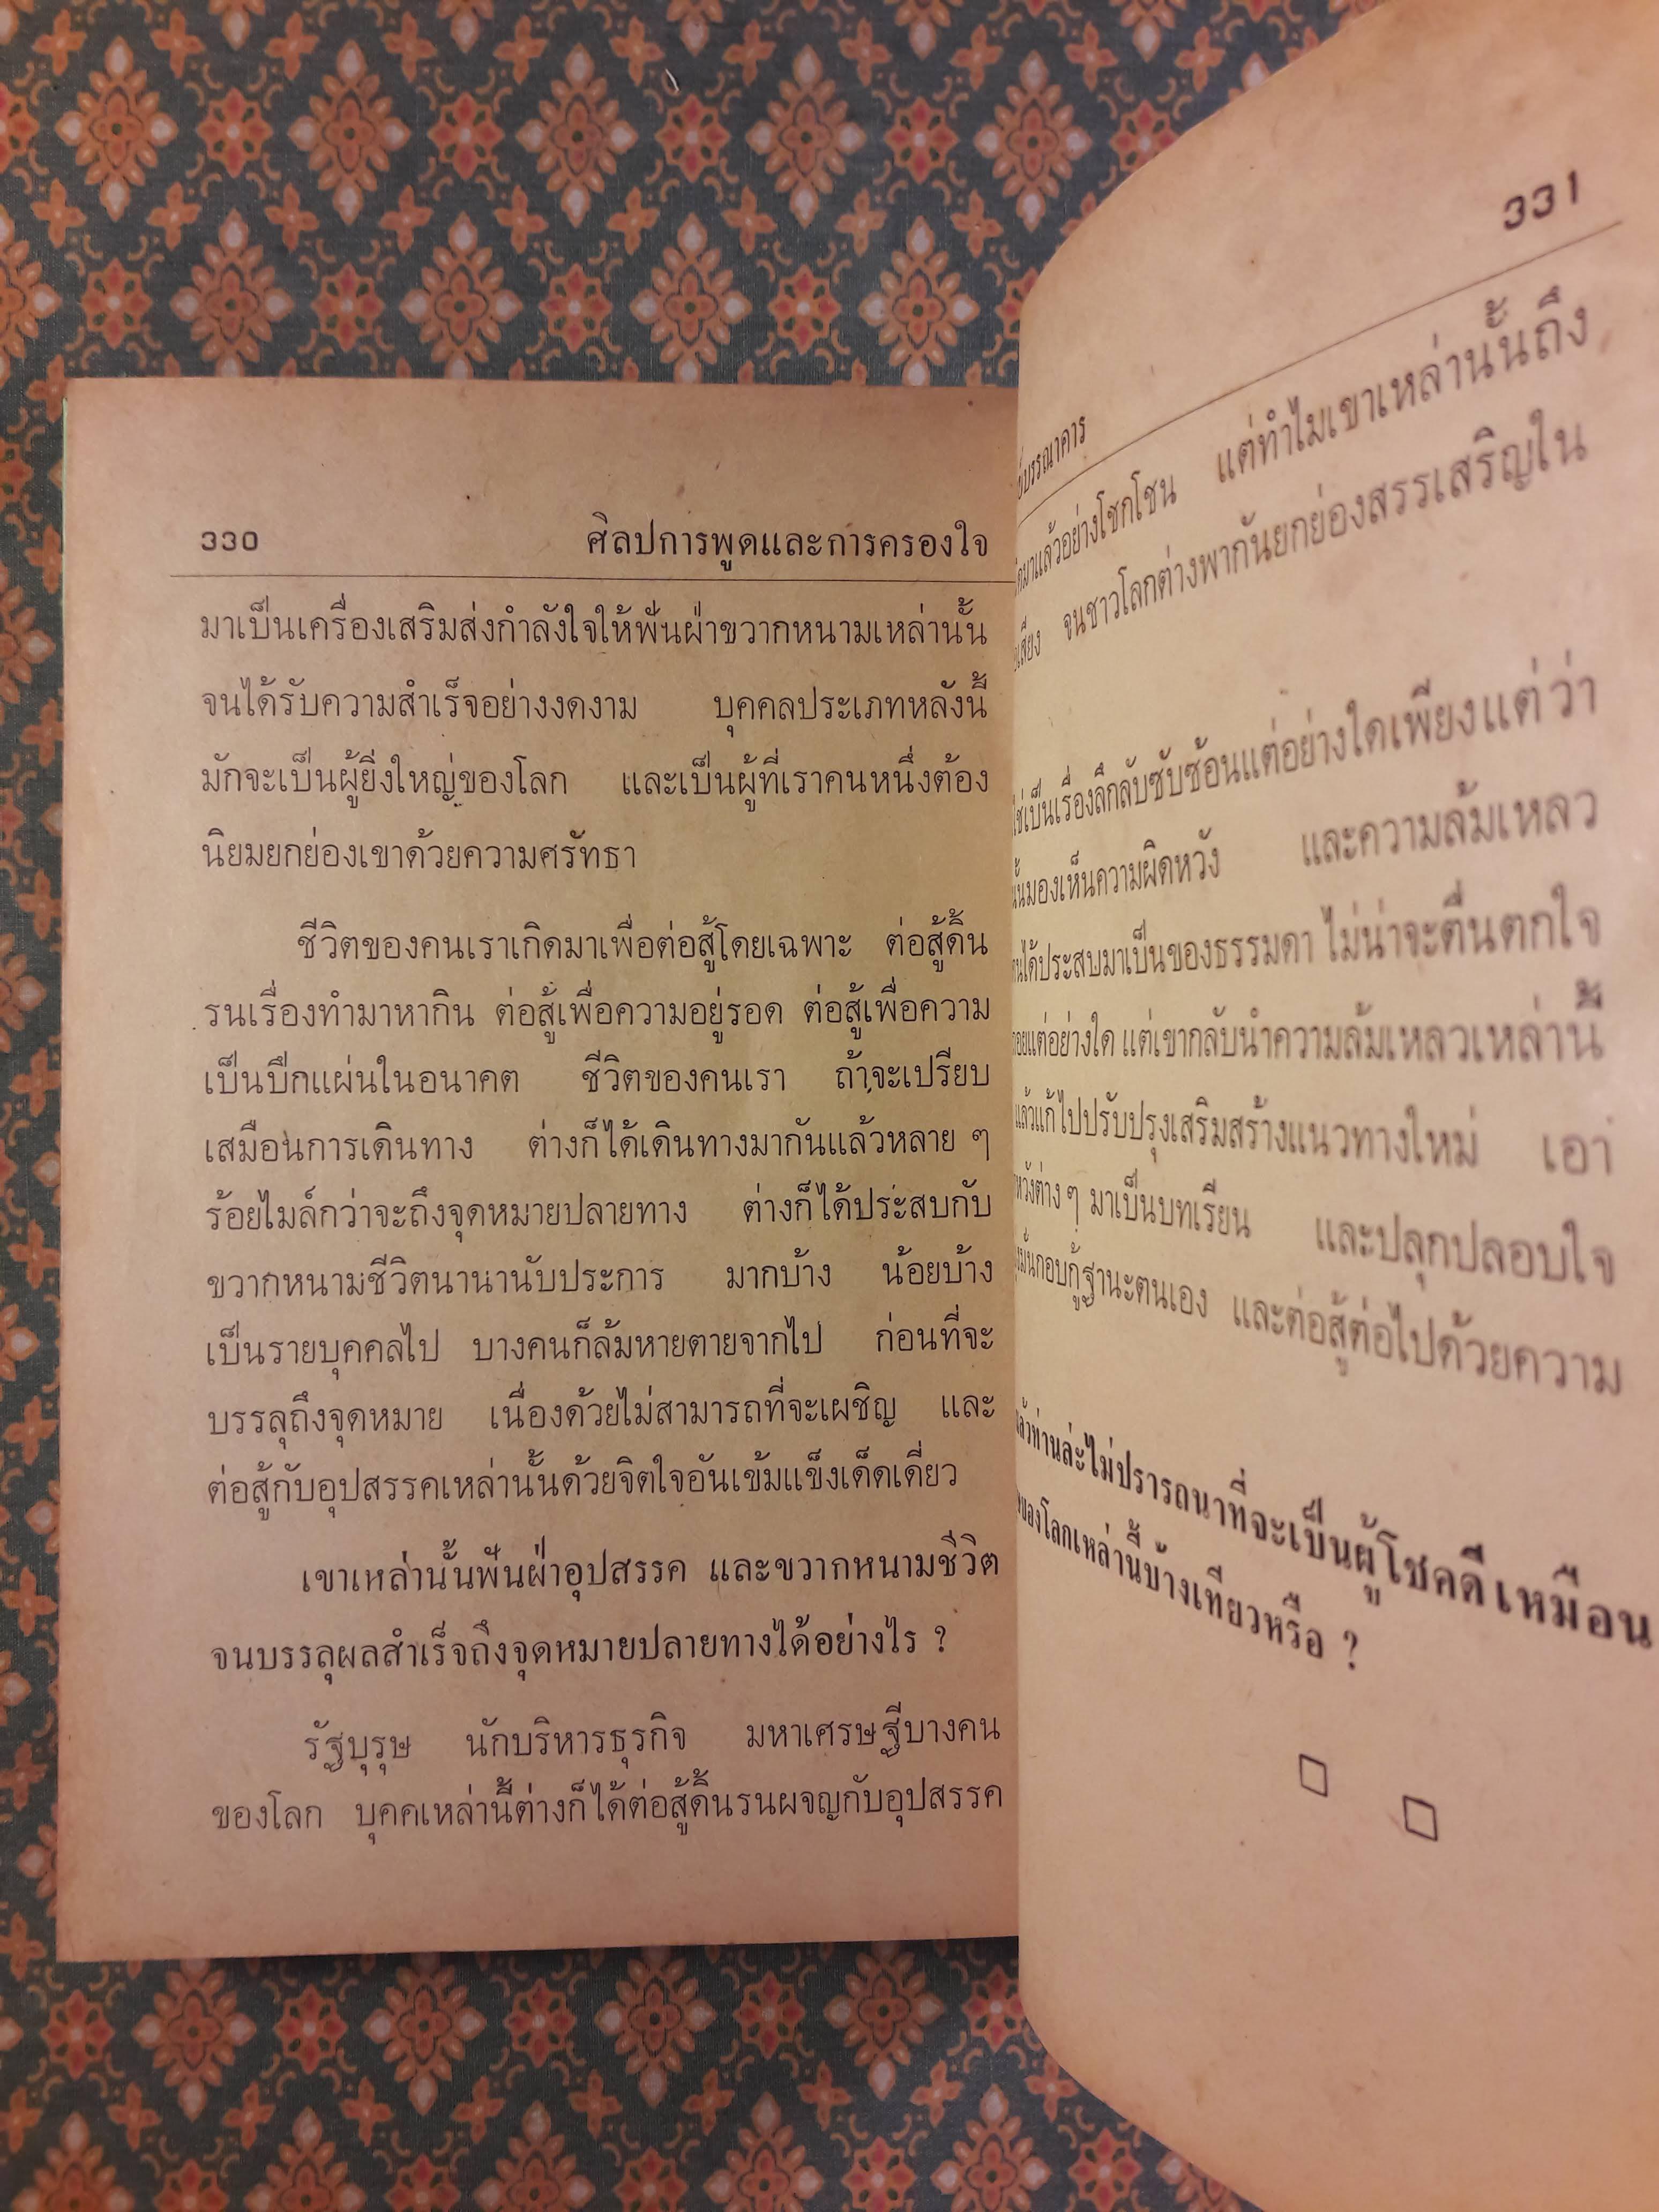 330 ศิลปการพูดและการครองใจ
มาเป็นเครื่องเสริมส่งกำลังใจให้ฟันฝ่าขวากหนามเหล่านั้น
จนได้รับความสำเร็จอย่างงดงาม บุคคลประเภทหลังนี้
มักจะเป็นผู้ยิ่งใหญ่ของโลก และเป็นผู้ที่เราคนหนึ่งต้อง
นิยมยกย่องเขาด้วยความศรัทธา
ชีวิตของคนเราเกิดมาเพื่อต่อสู้โดยเฉพาะ ต่อสู้ดิ้น
รนเรื่องทำมาหากิน ต่อสู้เพื่อความอยู่รอด ต่อสู้เพื่อความ
เป็นปึกแผ่นในอนาคต ชีวิตของคนเรา ถ้าจะเปรียบ
เสมือนการเดินทาง ต่างก็ได้เดินทางมากันแล้วหลาย ๆ
ร้อยไมล์กว่าจะถึงจุดหมายปลายทาง ต่างก็ได้ประสบกับ
ขวากหนามชีวิตนานานับประการ มากบ้าง น้อยบ้าง
เป็นรายบุคคลไป บางคนก็ล้มหายตายจากไป ก่อนที่จะ
บรรลุถึงจุดหมาย เนื่องด้วยไม่สามารถที่จะเผชิญ และ
ต่อสู้กับอุปสรรคเหล่านั้นด้วยจิตใจอันเข้มแข็งเด็ดเดี่ยว
เขาเหล่านั้นฟันฝ่าอุปสรรค และขวากหนามชีวิต
จนบรรลุผลสำเร็จถึงจุดหมายปลายทางได้อย่างไร ?
รัฐบุรุษ นักบริหารธุรกิจ มหาเศรษฐีบางคน
ของโลก บุคคเหล่านี้ต่างก็ได้ต่อสู้ดิ้นรนผจญกับอุปสรรค
บรรณาคาร 331
มาแล้วอย่างโชกโชน แต่ทำไมเขาเหล่านั้นถึง
เสียง จนชาวโลกต่างพากันยกย่องสรรเสริญใน
เป็นเรื่องลึกลับซับซ้อนแต่อย่างใดเพียงแต่ว่า
มองเห็นความผิดหวัง และความล้มเหลว
ได้ประสบมาเป็นของธรรมดา ไม่น่าจะตื่นตกใจ
แต่อย่างใด แต่เขากลับนำความล้มเหลวเหล่านี้
แล้วแก้ไปปรับปรุงเสริมสร้างแนวทางใหม่ เอา
ต่าง ๆ มาเป็นบทเรียน และปลุกปลอบใจ
กอบกู้ฐานะตนเอง และต่อสู้ต่อไปด้วยความ
ท่านล่ะไม่ปรารถนาที่จะเป็นผู้โชคดีเหมือน
ของโลกเหล่านี้บ้างเทียวหรือ ?